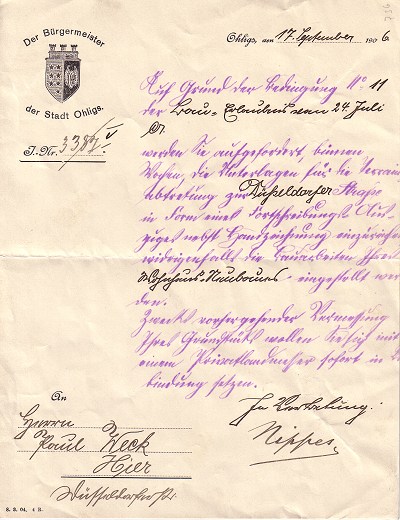 Der Bürgermeister
der Stadt Ohligs.
J.-Nr. 3382 V
Ohligs, am 17. September 1906
736
Auf Grund der Bedingung No 11
der Bau-Erlaubnis vom 24 Juli
werden Sie aufgefordert, binnen
Wochen, die Unterlagen für die Terrain
abtretung zur Düsseldorfer Straße
in Form eines Fortschreibungs-Aus-
zuges nebst Handzeichnung einzureichen
widrigenfalls die Bauarbeiten Ihres
Wohnhaus-Neubaues eingestellt wer
den.
Zwecks vorhergehender Vermessung
Ihres Grundstücks wollen Sie sich mit
einem Privatlandmesser sofort in Ver
bindung setzen.
In Vertretung:
Nippes
An
Herrn
Paul Weck
Hier
Düsseldorferstr.
S. 3. 04. 4 B.